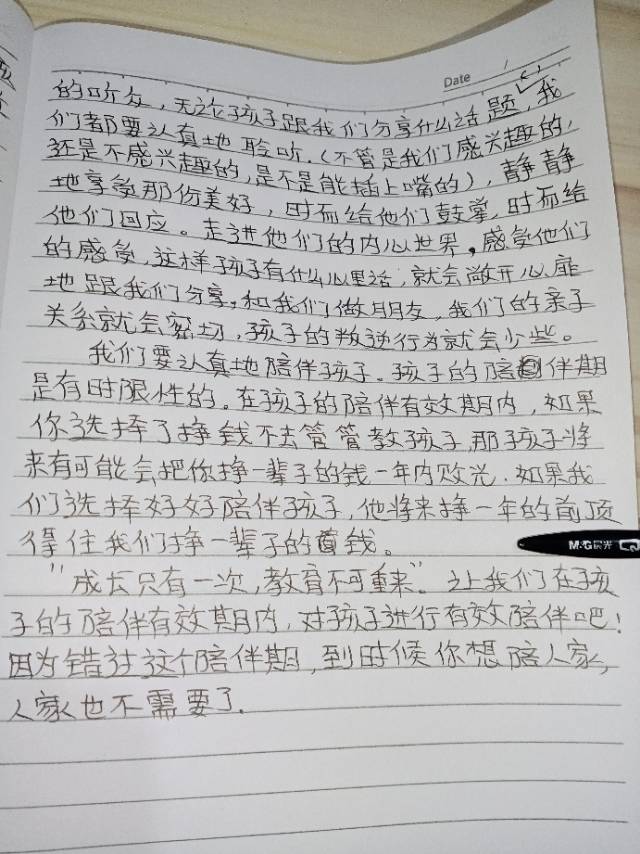 Date /
的听众，无论孩子跟我们分享什么话题，我
们都要认真地聆听.(不管是我们感兴趣的,
还是不感兴趣的,是不是能插上嘴的)，静静
地享受那份美好，时而给他们鼓掌,时而给
他们回应。走进他们的内心世界，感受他们
的感受,这样孩子有什么心里话,就会敞开心扉
地跟我们分享,和我们做朋友，我们的亲子
关系就会密切，孩子的叛逆行为就会少些。
我们要认真地陪伴孩子。孩子的陪伴期
是有时限性的。在孩子的陪伴有效期内，如果
你选择了挣钱不去管管教孩子,那孩子将
来有可能会把你挣一辈子的钱一年内败光.如果我
们选择好好陪伴孩子，他将来挣一年的前顶
得住我们挣一辈子的钱。
"成长只有一次,教育不可重来"。让我们在孩
子的陪伴有效期内，对孩子进行有效陪伴吧!
因为错过这个陪伴期，到时候你想陪人家,
人家也不需要了.
M&G晨光